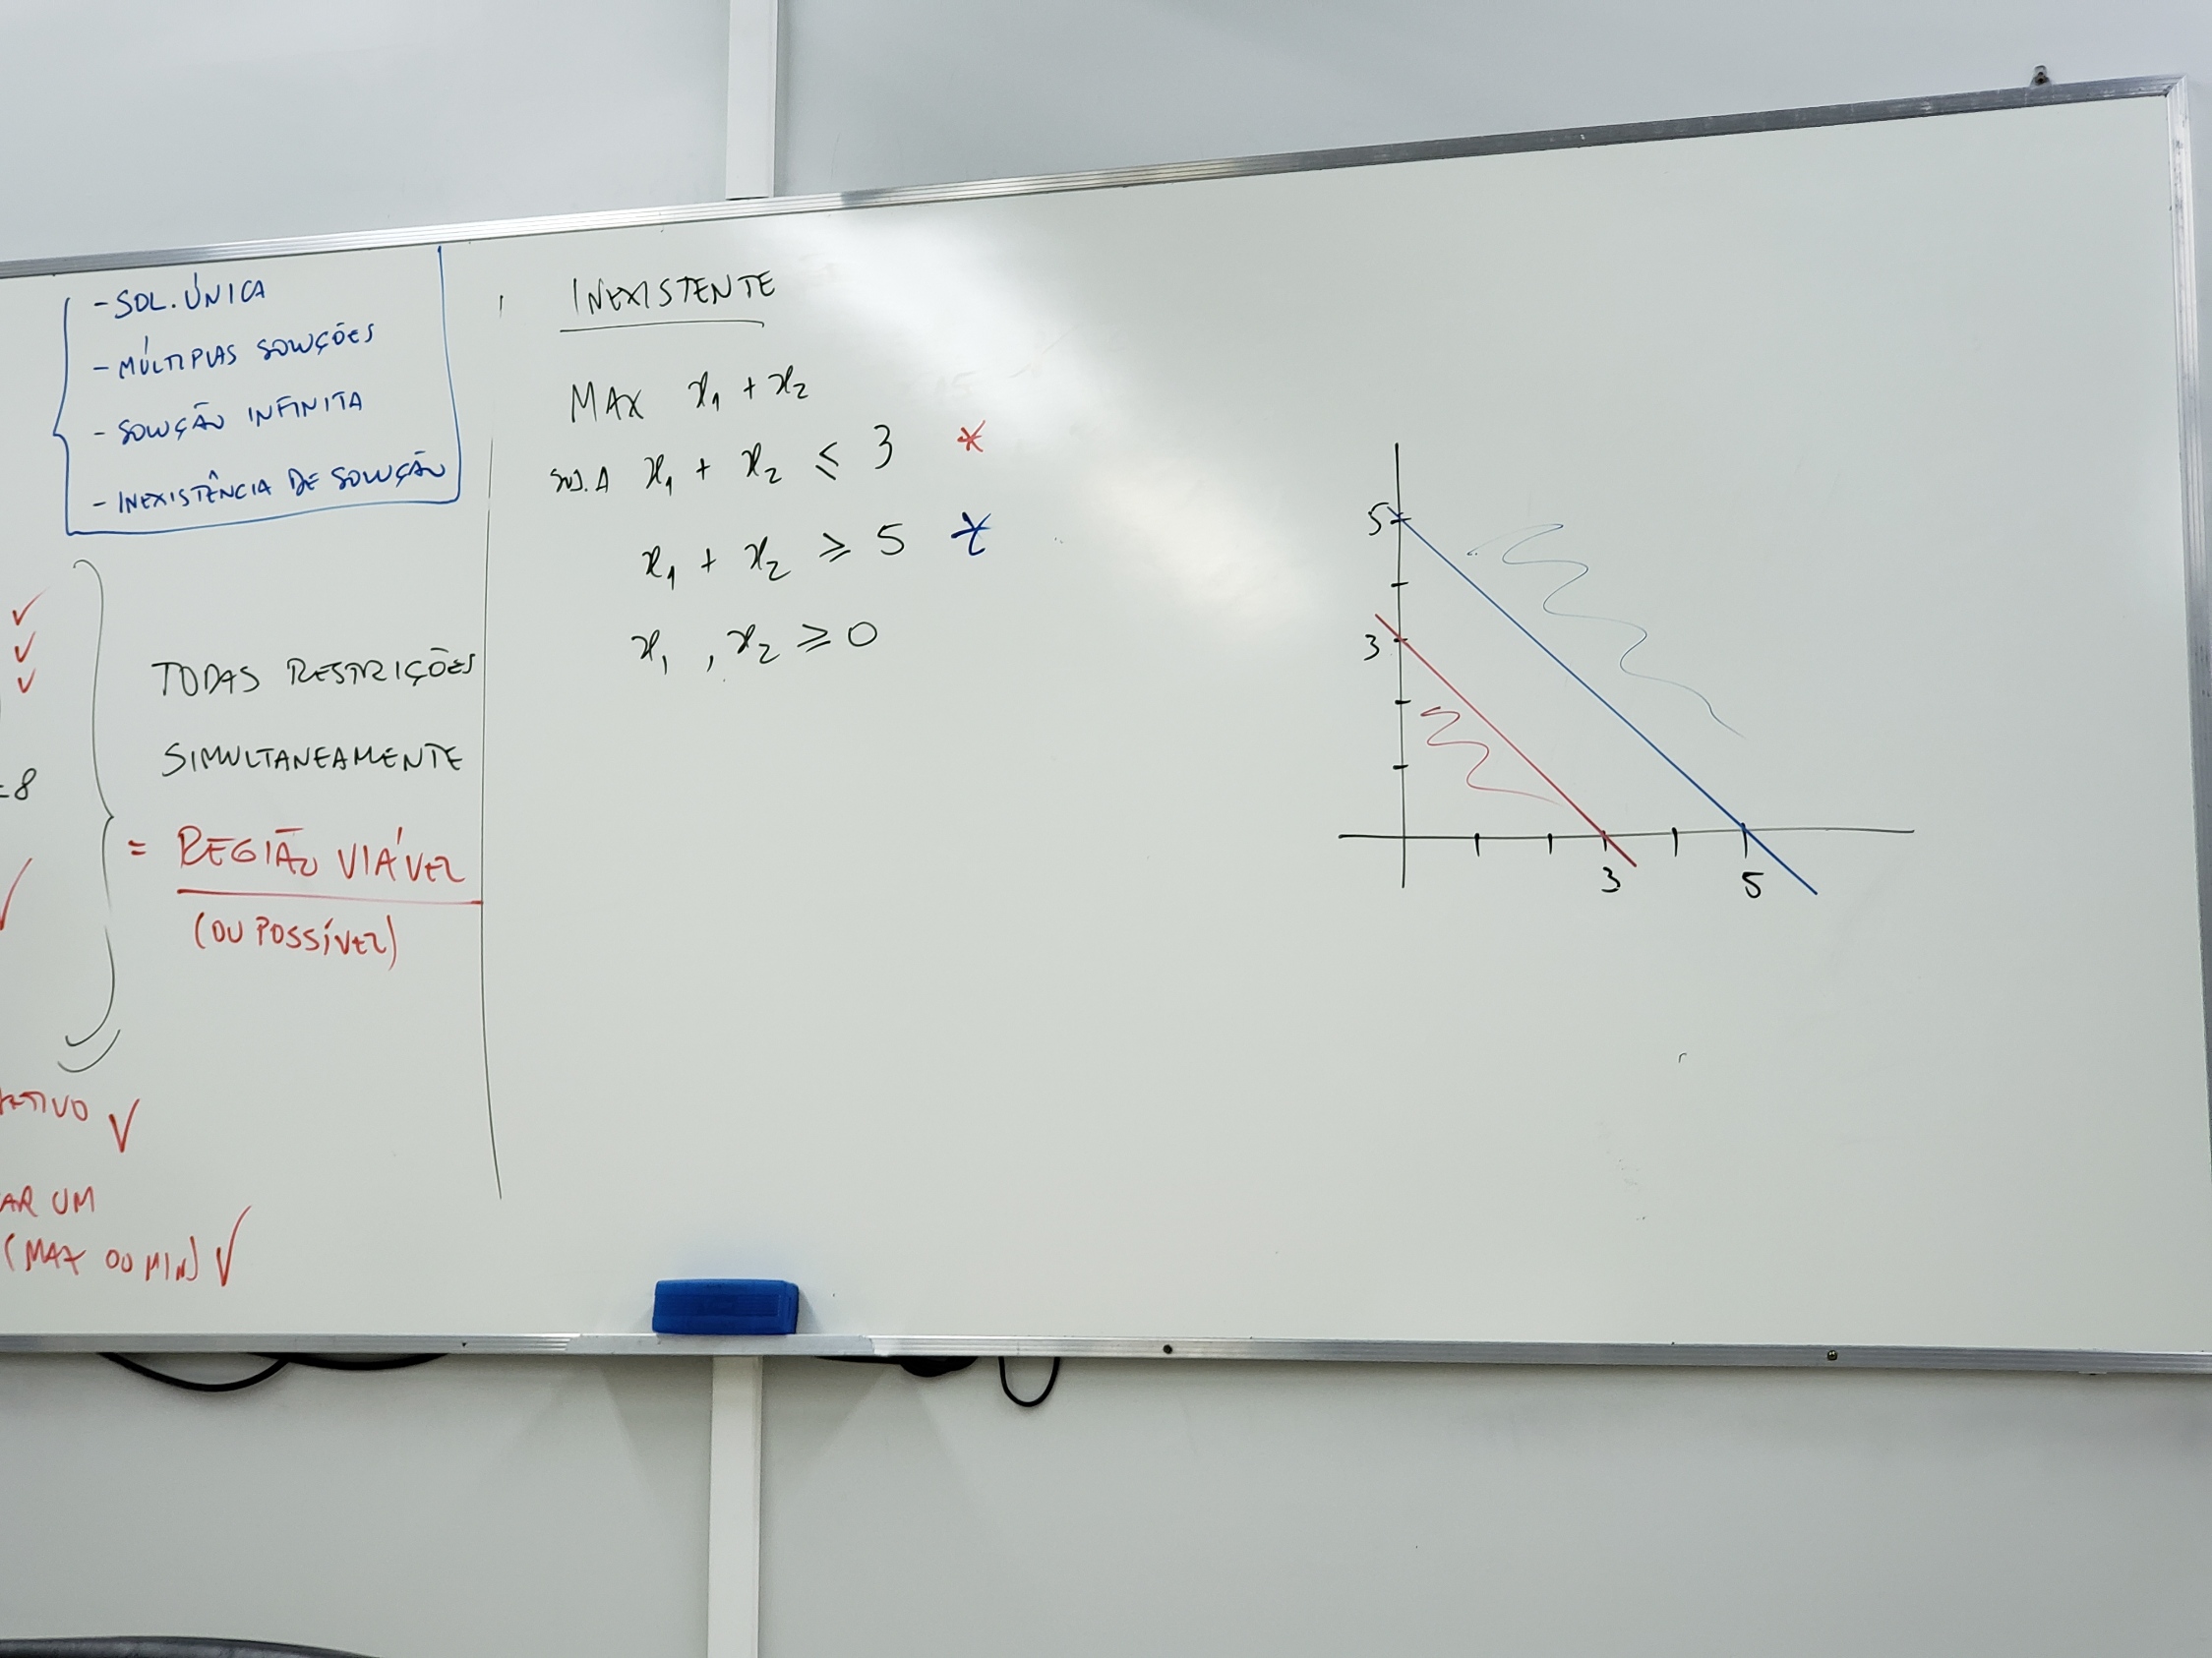 - SOL. ÚNICA
- MÚLTIPLAS SOLUÇÕES
- SOLUÇÃO INFINITA
- INEXISTÊNCIA DE SOLUÇÃO
TODAS RESTRIÇÕES
SIMULTANEAMENTE
= REGIÃO VIÁVEL
(OU POSSÍVEL)
=8
AR UM
(MAX OU MIN) ✓
INEXISTENTE
MAX x₁ + x₂
SUJ. A x₁ + x₂ ≤ 3 *
x₁ + x₂ ≥ 5 *
x₁ , x₂ ≥ 0
5
3
3 5